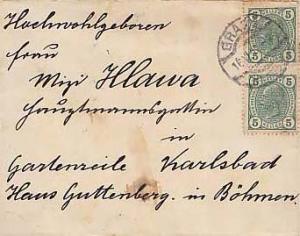 Hochwohlgeboren
Frau
Mizi Hlawa
Hauptmannsgattin
in
Gartenzeile Karlsbad
Haus Guttenberg. in Böhmen.
GRAZ
5 5
5 5